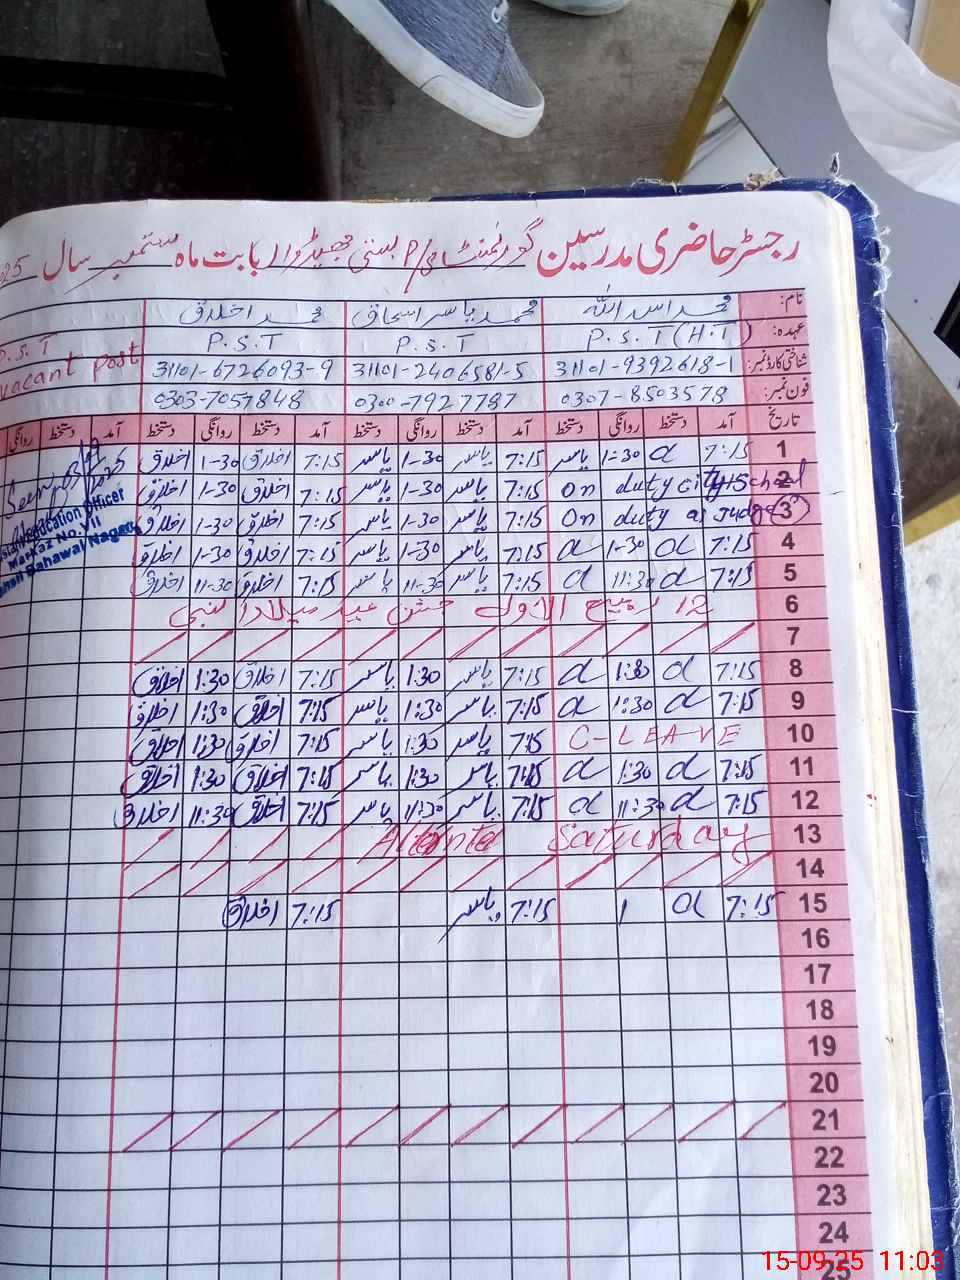 رجسٹر حاضری مدرسین گورنمنٹ P/S بستی بابت ماہ ستمبر سال 2025
نام: محمد اسد اللہ محمد یاسر اسحاق محمد اخلاق
عہدہ: P.S.T (H.T) P.S.T P.S.T P.S.T
vacant post
شناختی کارڈ نمبر: 31101-9392618-1 31101-2406581-5 31101-6726093-9
فون نمبر: 0307-8503578 0300-7927787 0303-7057848
تاریخ آمد دستخط روانگی دستخط آمد دستخط روانگی دستخط آمد دستخط روانگی دستخط آمد دستخط روانگی
1 7:15 a 1:30 یاسر 7:15 یاسر 1-30 یاسر 7:15 اخلاق 1-30 اخلاق
2 On duty city school 7:15 یاسر 1-30 یاسر 7:15 اخلاق 1-30 اخلاق
3 On duty as Judge 7:15 یاسر 1-30 یاسر 7:15 اخلاق 1-30 اخلاق
4 7:15 a 1-30 a 7:15 یاسر 1-30 یاسر 7:15 اخلاق 1-30 اخلاق
5 7:15 a 11:30 a 7:15 یاسر 11-30 یاسر 7:15 اخلاق 11-30 اخلاق
6 12 ربیع الاول جشن عید میلاد النبی
7
8 7:15 a 1:30 a 7:15 یاسر 1:30 یاسر 7:15 اخلاق 1:30 اخلاق
9 7:15 a 1:30 a 7:15 یاسر 1:30 یاسر 7:15 اخلاق 1:30 اخلاق
10 C-LEAVE 7:15 یاسر 1:30 یاسر 7:15 اخلاق 1:30 اخلاق
11 7:15 a 1:30 a 7:15 یاسر 1:30 یاسر 7:15 اخلاق 1:30 اخلاق
12 7:15 a 11:30 a 7:15 یاسر 11:30 یاسر 7:15 اخلاق 11:30 اخلاق
13 Saturday
14
15 7:15 a 1 7:15 یاسر 7:15 اخلاق
16
17
18
19
20
21
22
23
24
25
Seen
Education Officer
Markaz No. VII
Bahawal Nagar
15-09-25 11:03